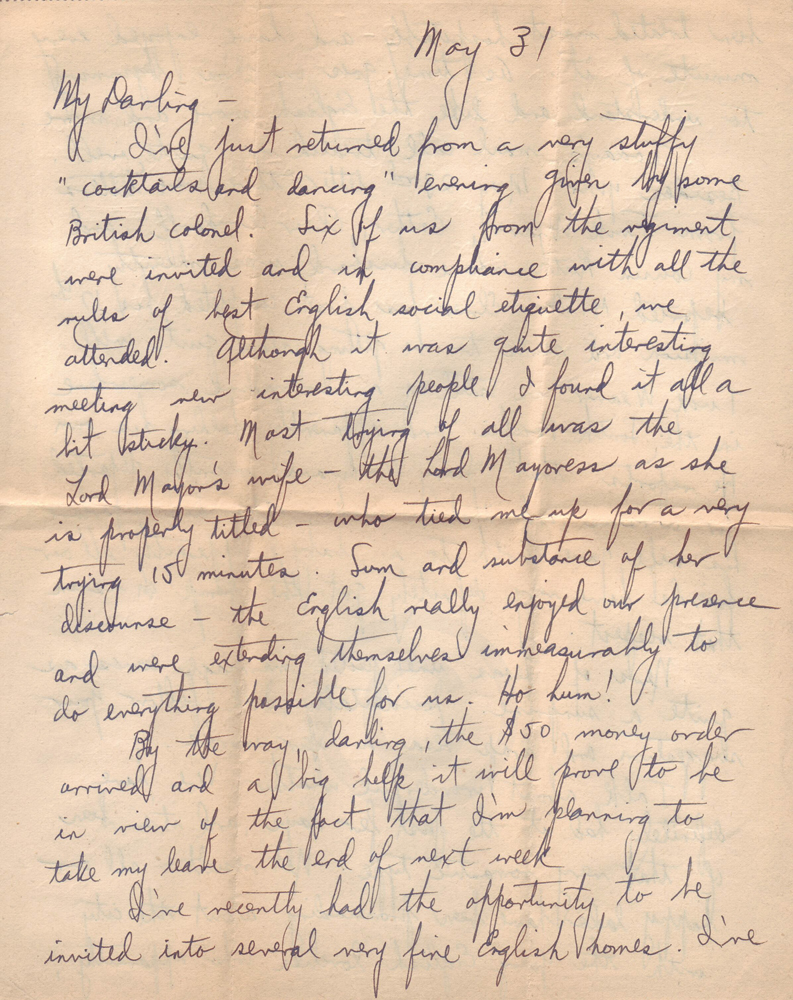 May 31
My Darling –
I've just returned from a very stuffy
"cocktails and dancing" evening given by some
British colonel. Six of us from the regiment
were invited and in compliance with all the
rules of best English social etiquette, we
attended. Although it was quite interesting
meeting new interesting people I found it all a
bit sticky. Most trying of all was the
Lord Mayor's wife – the Lord Mayoress as she
is properly titled – who tied me up for a very
trying 15 minutes. Sum and substance of her
discourse – the English really enjoyed our presence
and were extending themselves immeasurably to
do everything possible for us. Ho hum!
By the way, darling, the $50 money order
arrived and a big help it will prove to be
in view of the fact that I'm planning to
take my leave the end of next week
I've recently had the opportunity to be
invited into several very fine English homes. I've